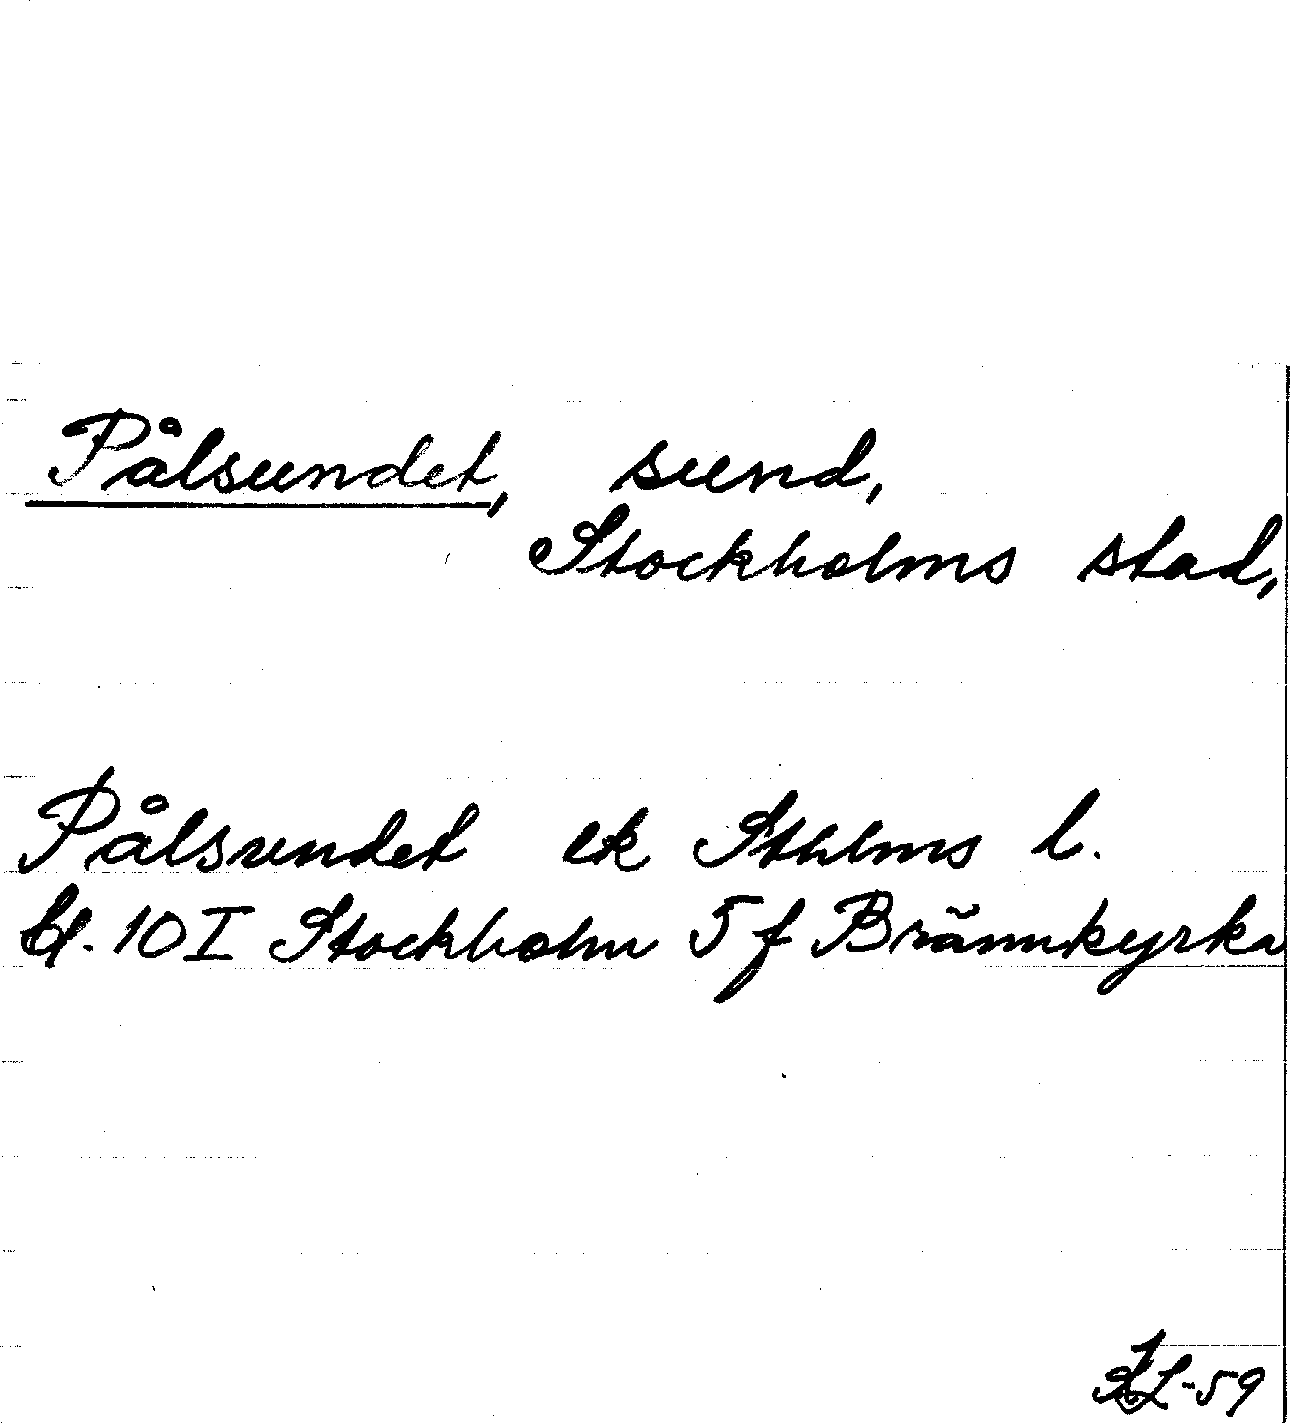 Pålsundet, sund,
Stockholms stad,
Pålsundet ek Sthlms l.
bl. 10 I Stockholm 5 f Brännkyrka
-59